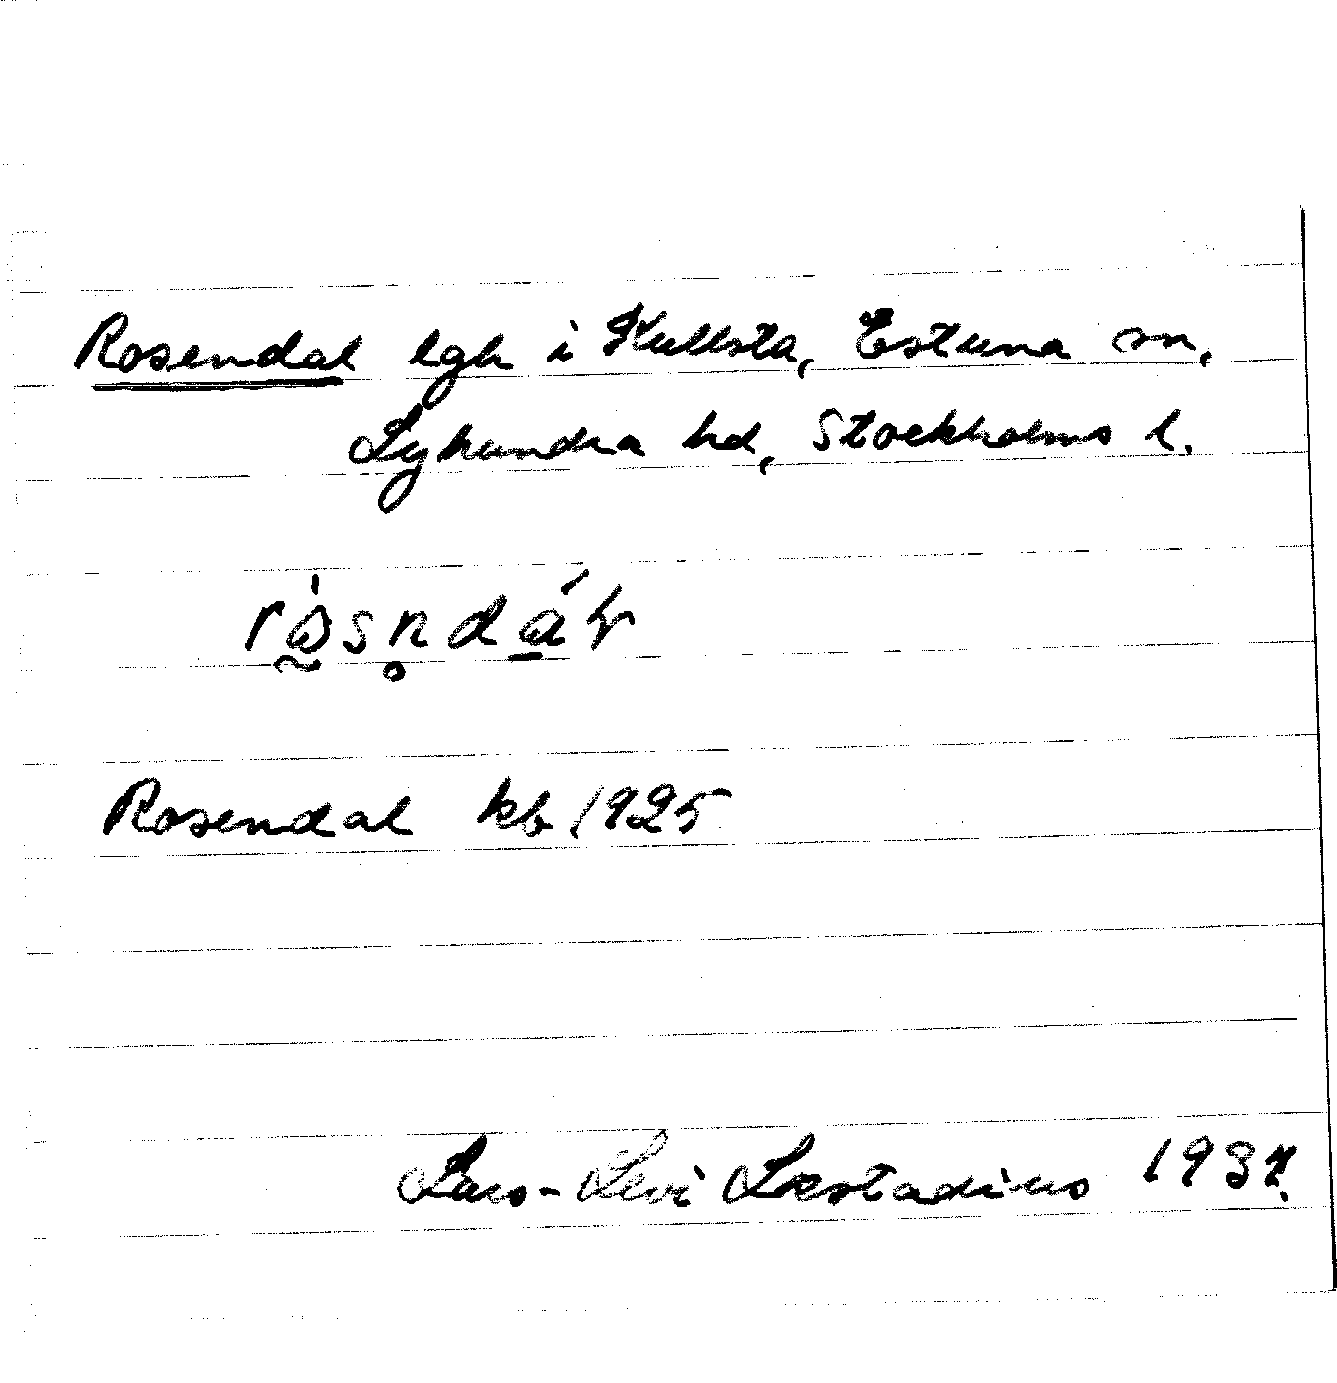 Rosendal lgh i Kullsta, Estuna sn,
Lyhundra hd, Stockholms l.
Rosendal kb 1925
Lars-Levi Læstadius